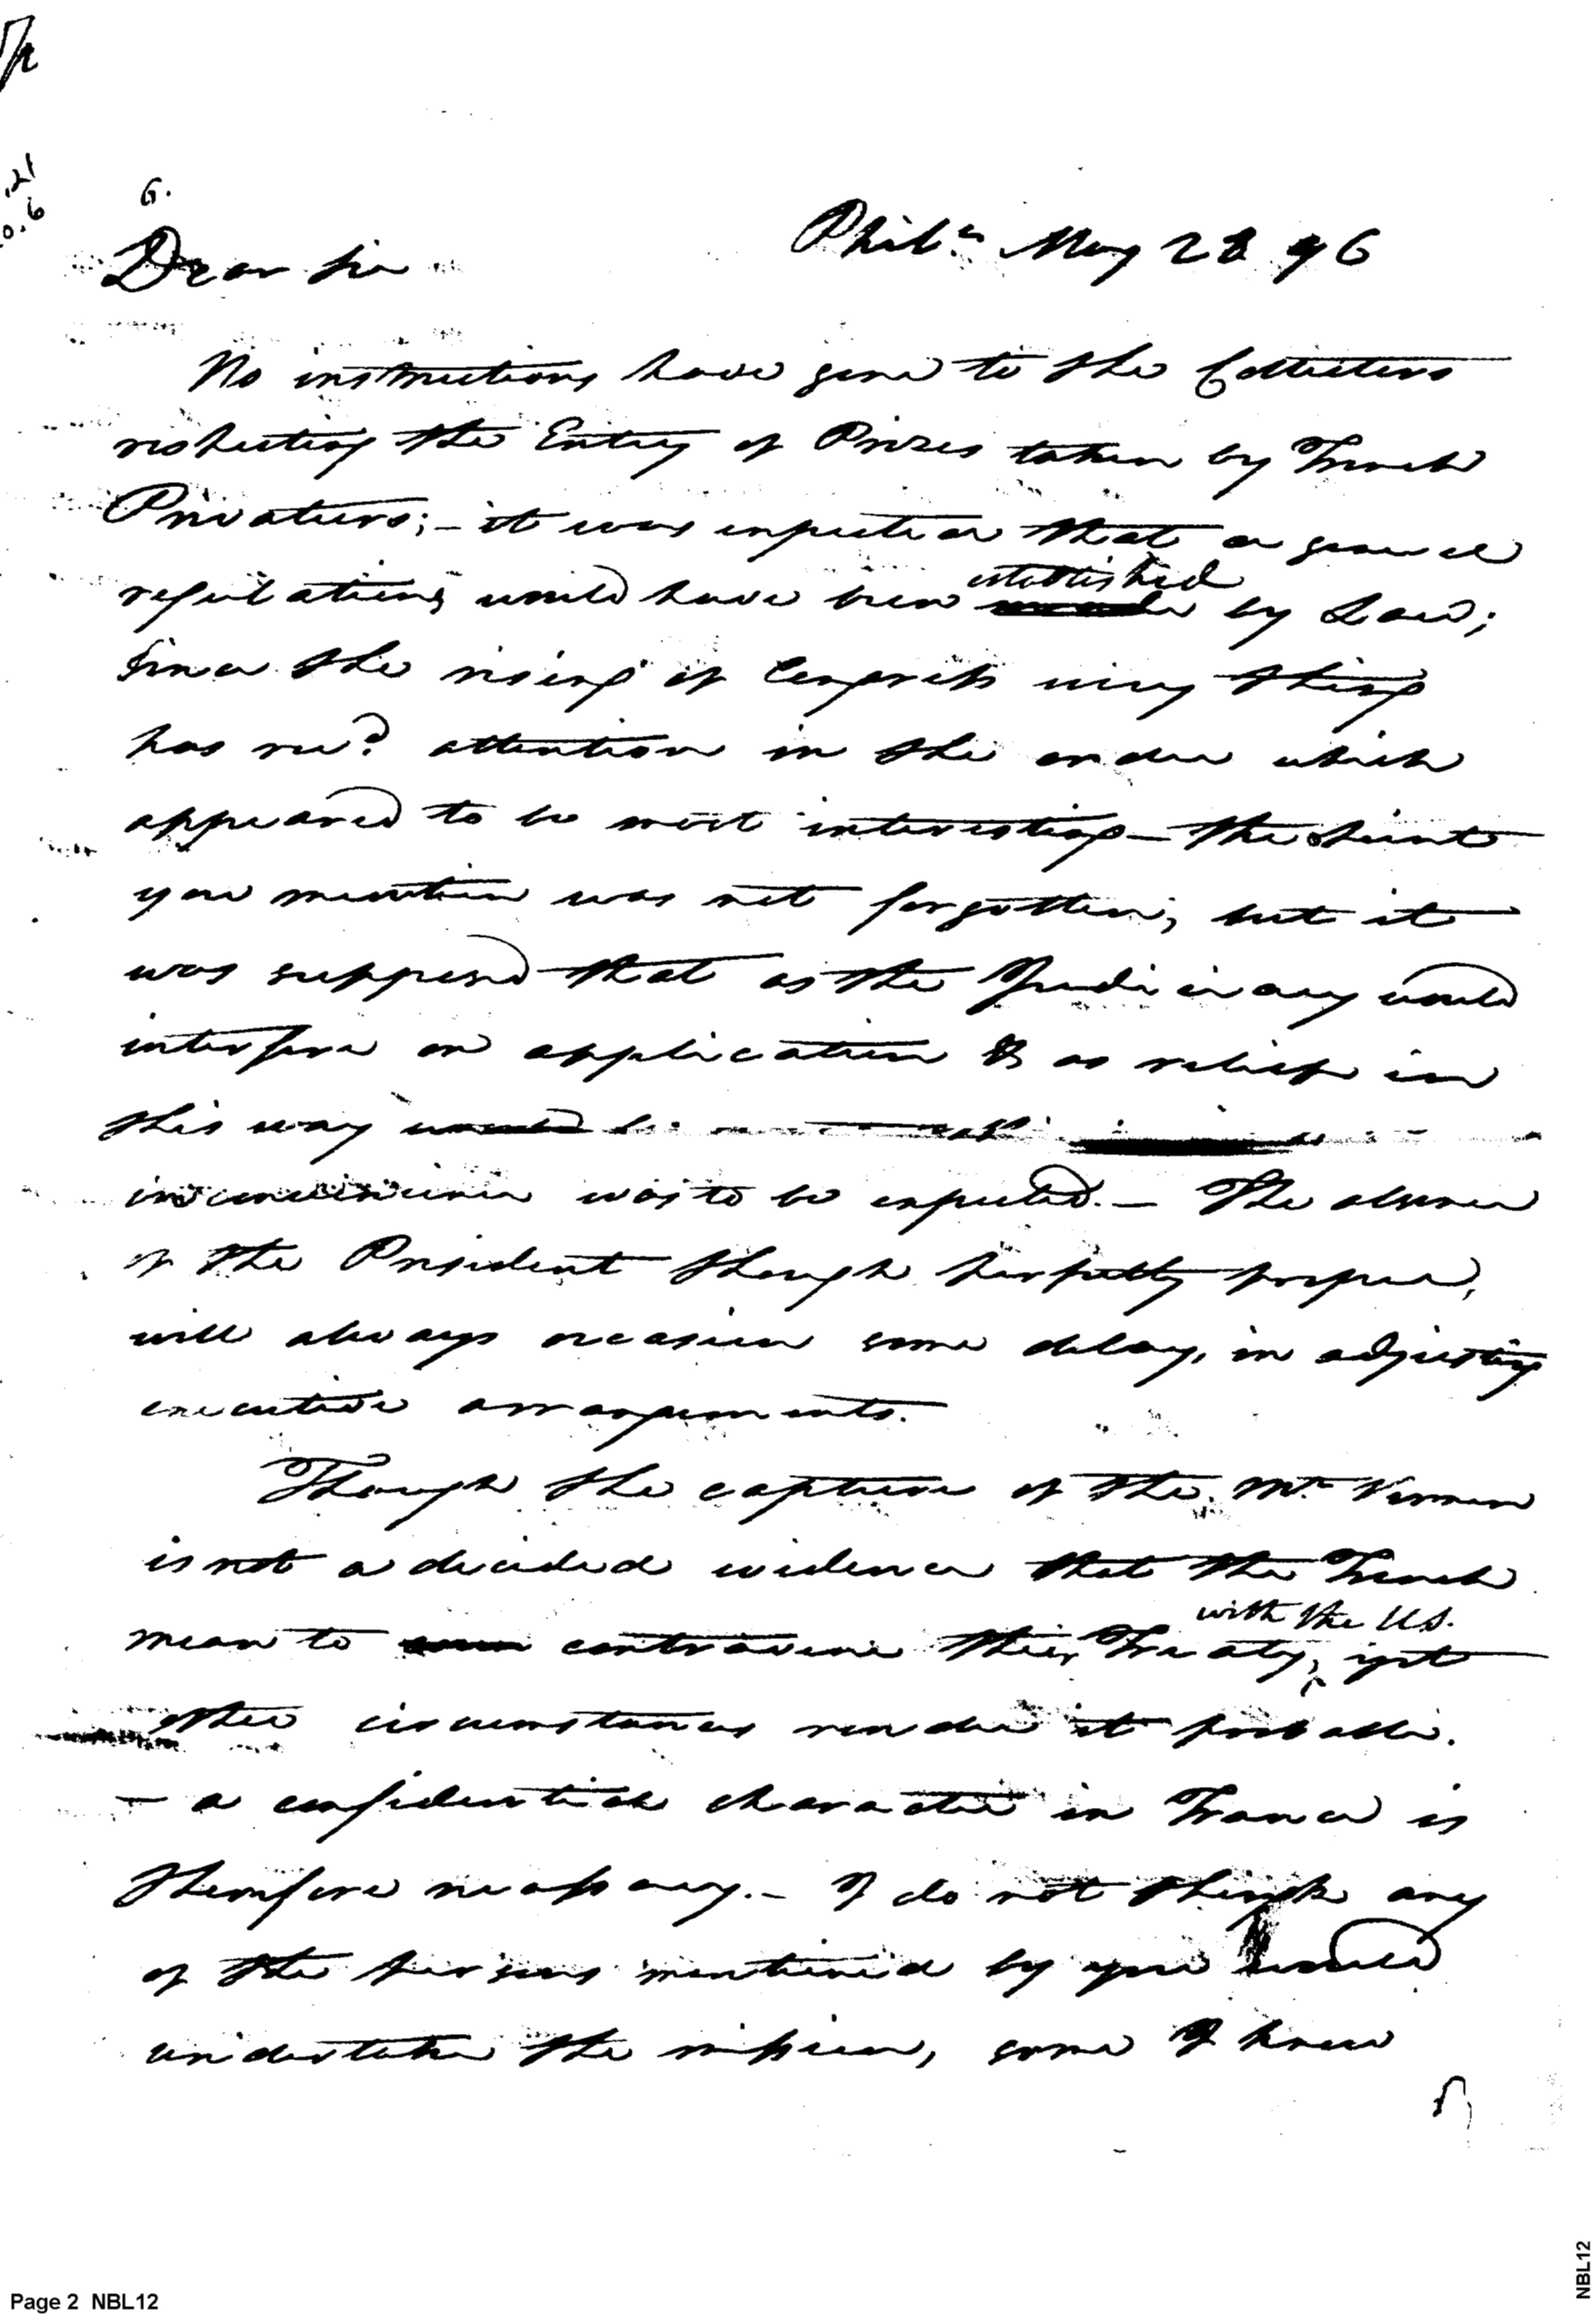 G.
Phila. May 28 96
Dear Sir
No instructions have gone to the Collectors
respecting the Entry of Prizes taken by French
Privateers; – it was expected that a general
regulations would have been established by Law;
Since the rising of Congress every thing
has recd. attention in the order which
appeared to be most interesting – the
you mention was not forgotten; but it
was supposed that as the Judiciary would
interfere on application & as relief in
this way would be
inconvenience was to be expected. – The absence
of the President though perfectly proper,
will always occasion some delay, in adjusting
executive arrangements.
Though the capture of the Mt. Vernon
is not a decided evidence that the French
with the US.
mean to contravene their Treaty, yet
other circumstances render it probable.
– a confidential character in France is
therefore necessary. – I do not think any
of the persons mentioned by you would
undertake the mission, some I know
Page 2 NBL12
NBL12